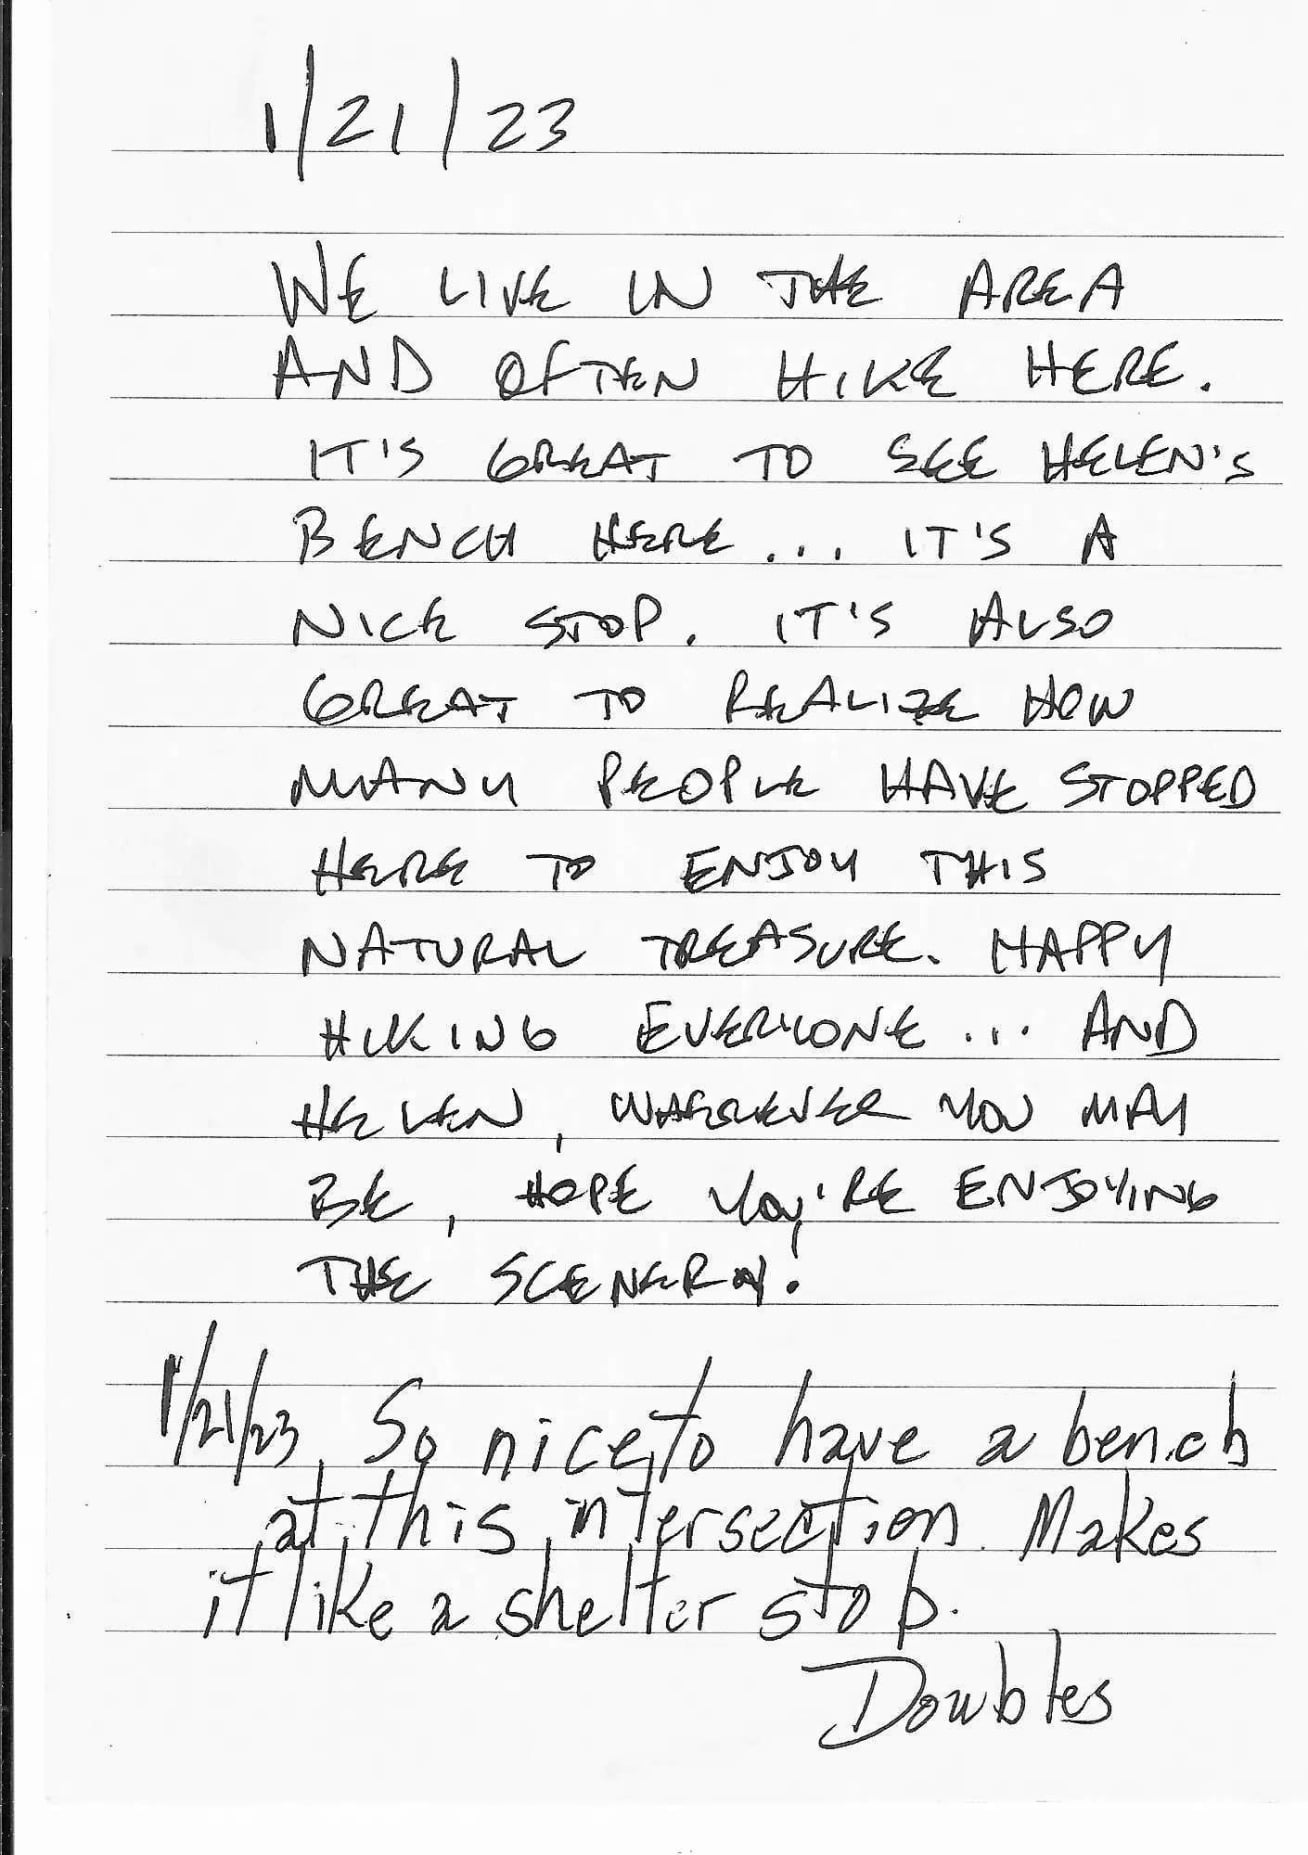 1/21/23
WE LIVE IN THE AREA
AND OFTEN HIKE HERE.
IT'S GREAT TO SEE HELEN'S
BENCH HERE... IT'S A
NICE STOP. IT'S ALSO
GREAT TO REALIZE HOW
MANY PEOPLE HAVE STOPPED
HERE TO ENJOY THIS
NATURAL TREASURE. HAPPY
HIKING EVERYONE... AND
HELEN, WHEREVER YOU MAY
BE, HOPE YOU'RE ENJOYING
THE SCENERY!
1/21/23 So nice to have a bench
at this intersection. Makes
it like a shelter stop.
Doubles